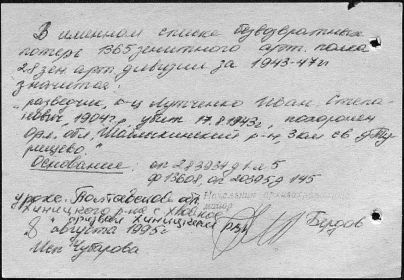 В именном списке безвозвратных
потерь 1365 зенитного арт. полка
28 зен. арт. дивизии за 1943-47гг
значится:
"разведчик, к-ц Лутченко Иван Степа-
нович, 1904г.р, убит 17.8.1943г, похоронен
Орл. обл, Шаблыкинский р-н, 3км св д. Ту-
рищево."
Основание: оп 283937 д 1 л 5
ф 13608 оп 20395 д 145
урож. Полтавской обл
р-на с
призван
августа 1995г
Исп Чубурова
Начальник архивохранилища
майор